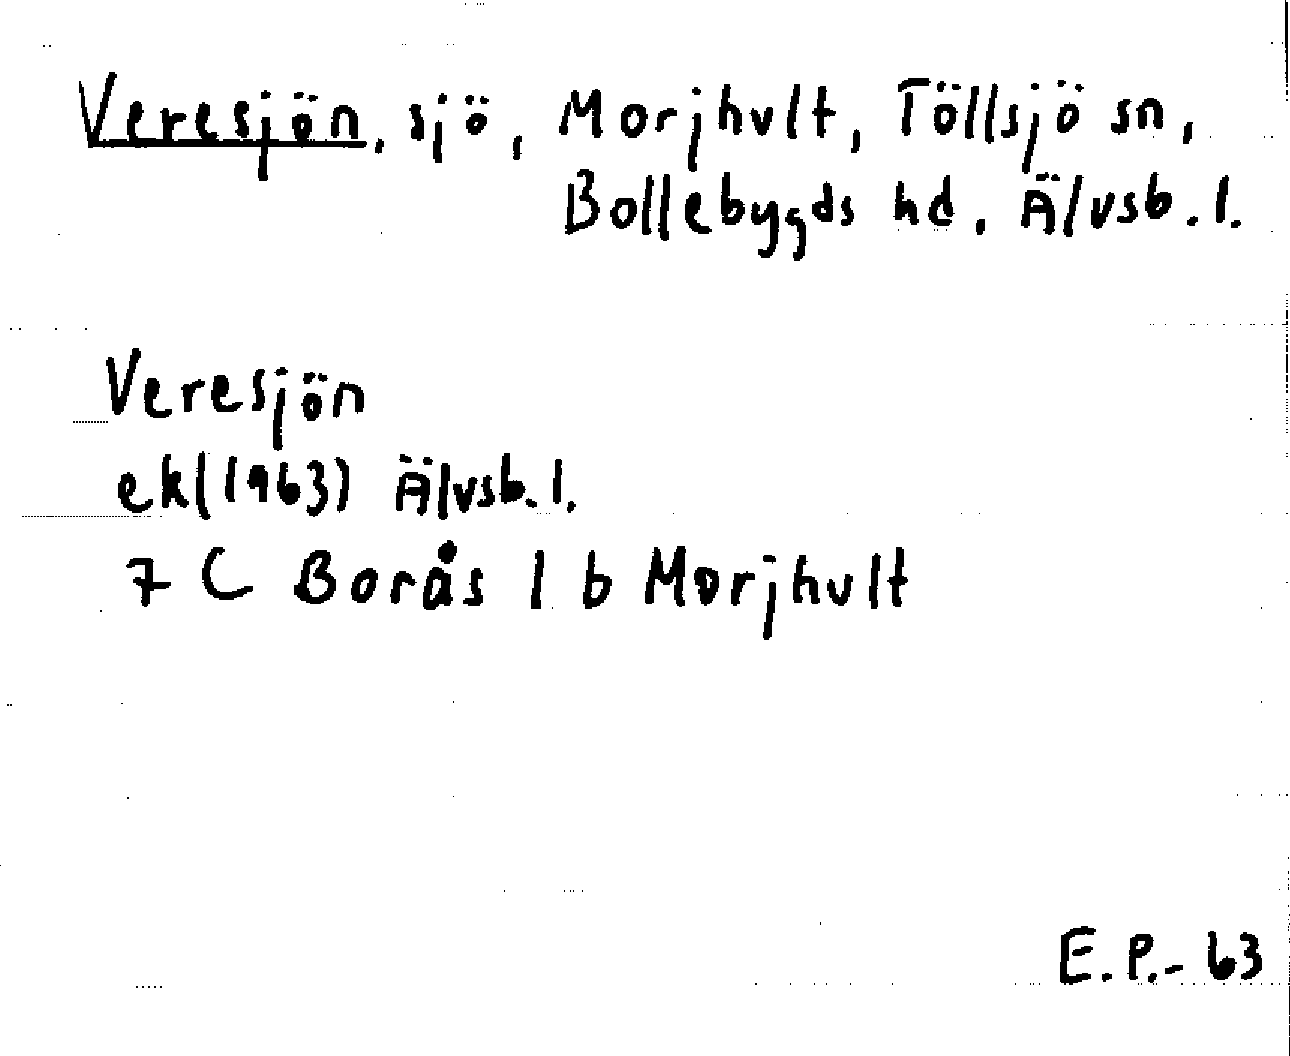 Veresjön, sjö, Morjhult, Töllsjö sn,
Bollebygds hd. Älvsb. l.
Veresjön
ek(1963) Älvsb. l.
7 C Borås 1 b Morjhult
E.P.- 63